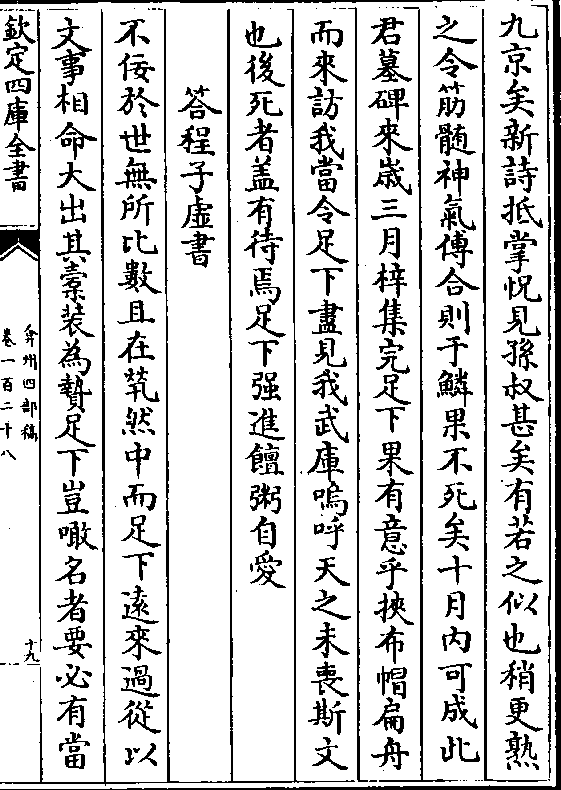 九京矣新詩抵掌怳見孫叔甚矣有若之似也稍更熟
之令筋髓神氣傅合則于鱗果不死矣十月内可成此
君墓碑來嵗三月梓集完足下果有意乎挾布帽扁舟
而來訪我當令足下盡見我武庫嗚呼天之未喪斯文
也後死者盖有待焉足下强進饘粥自愛
答程子虛書
不佞於世無所比數且在煢然中而足下遠來過從以
文事相命大出其槖装為贄足下豈噉名者要必有當
欽定四庫全書
弇州四部稿
卷一百二十八
十九